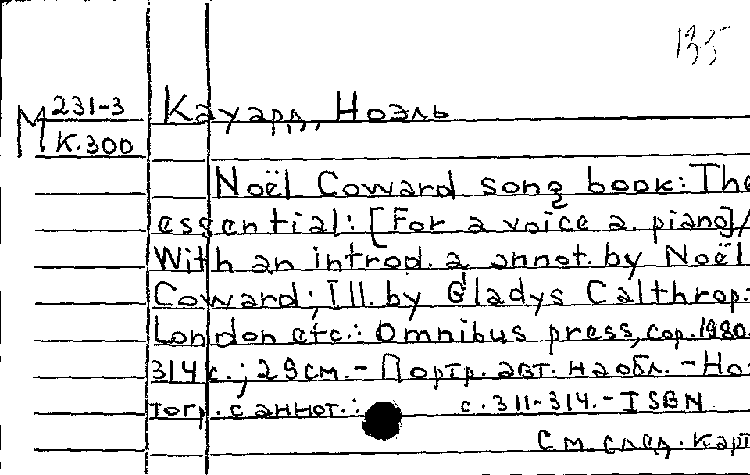 135
М 231-3
К.300
Кауард, Ноэль
Noël Coward song book: The
essential: [For a voice a. piano]/
With an introd. a. annot. by Noël
Coward; Ill. by Gladys Calthrop.
London etc.: Omnibus press, cop. 1980.
314 с.; 29 см. - Портр. авт. на обл. - Но-
тогр. с аннот.: с. 311-314. - ISBN
См. след. карт